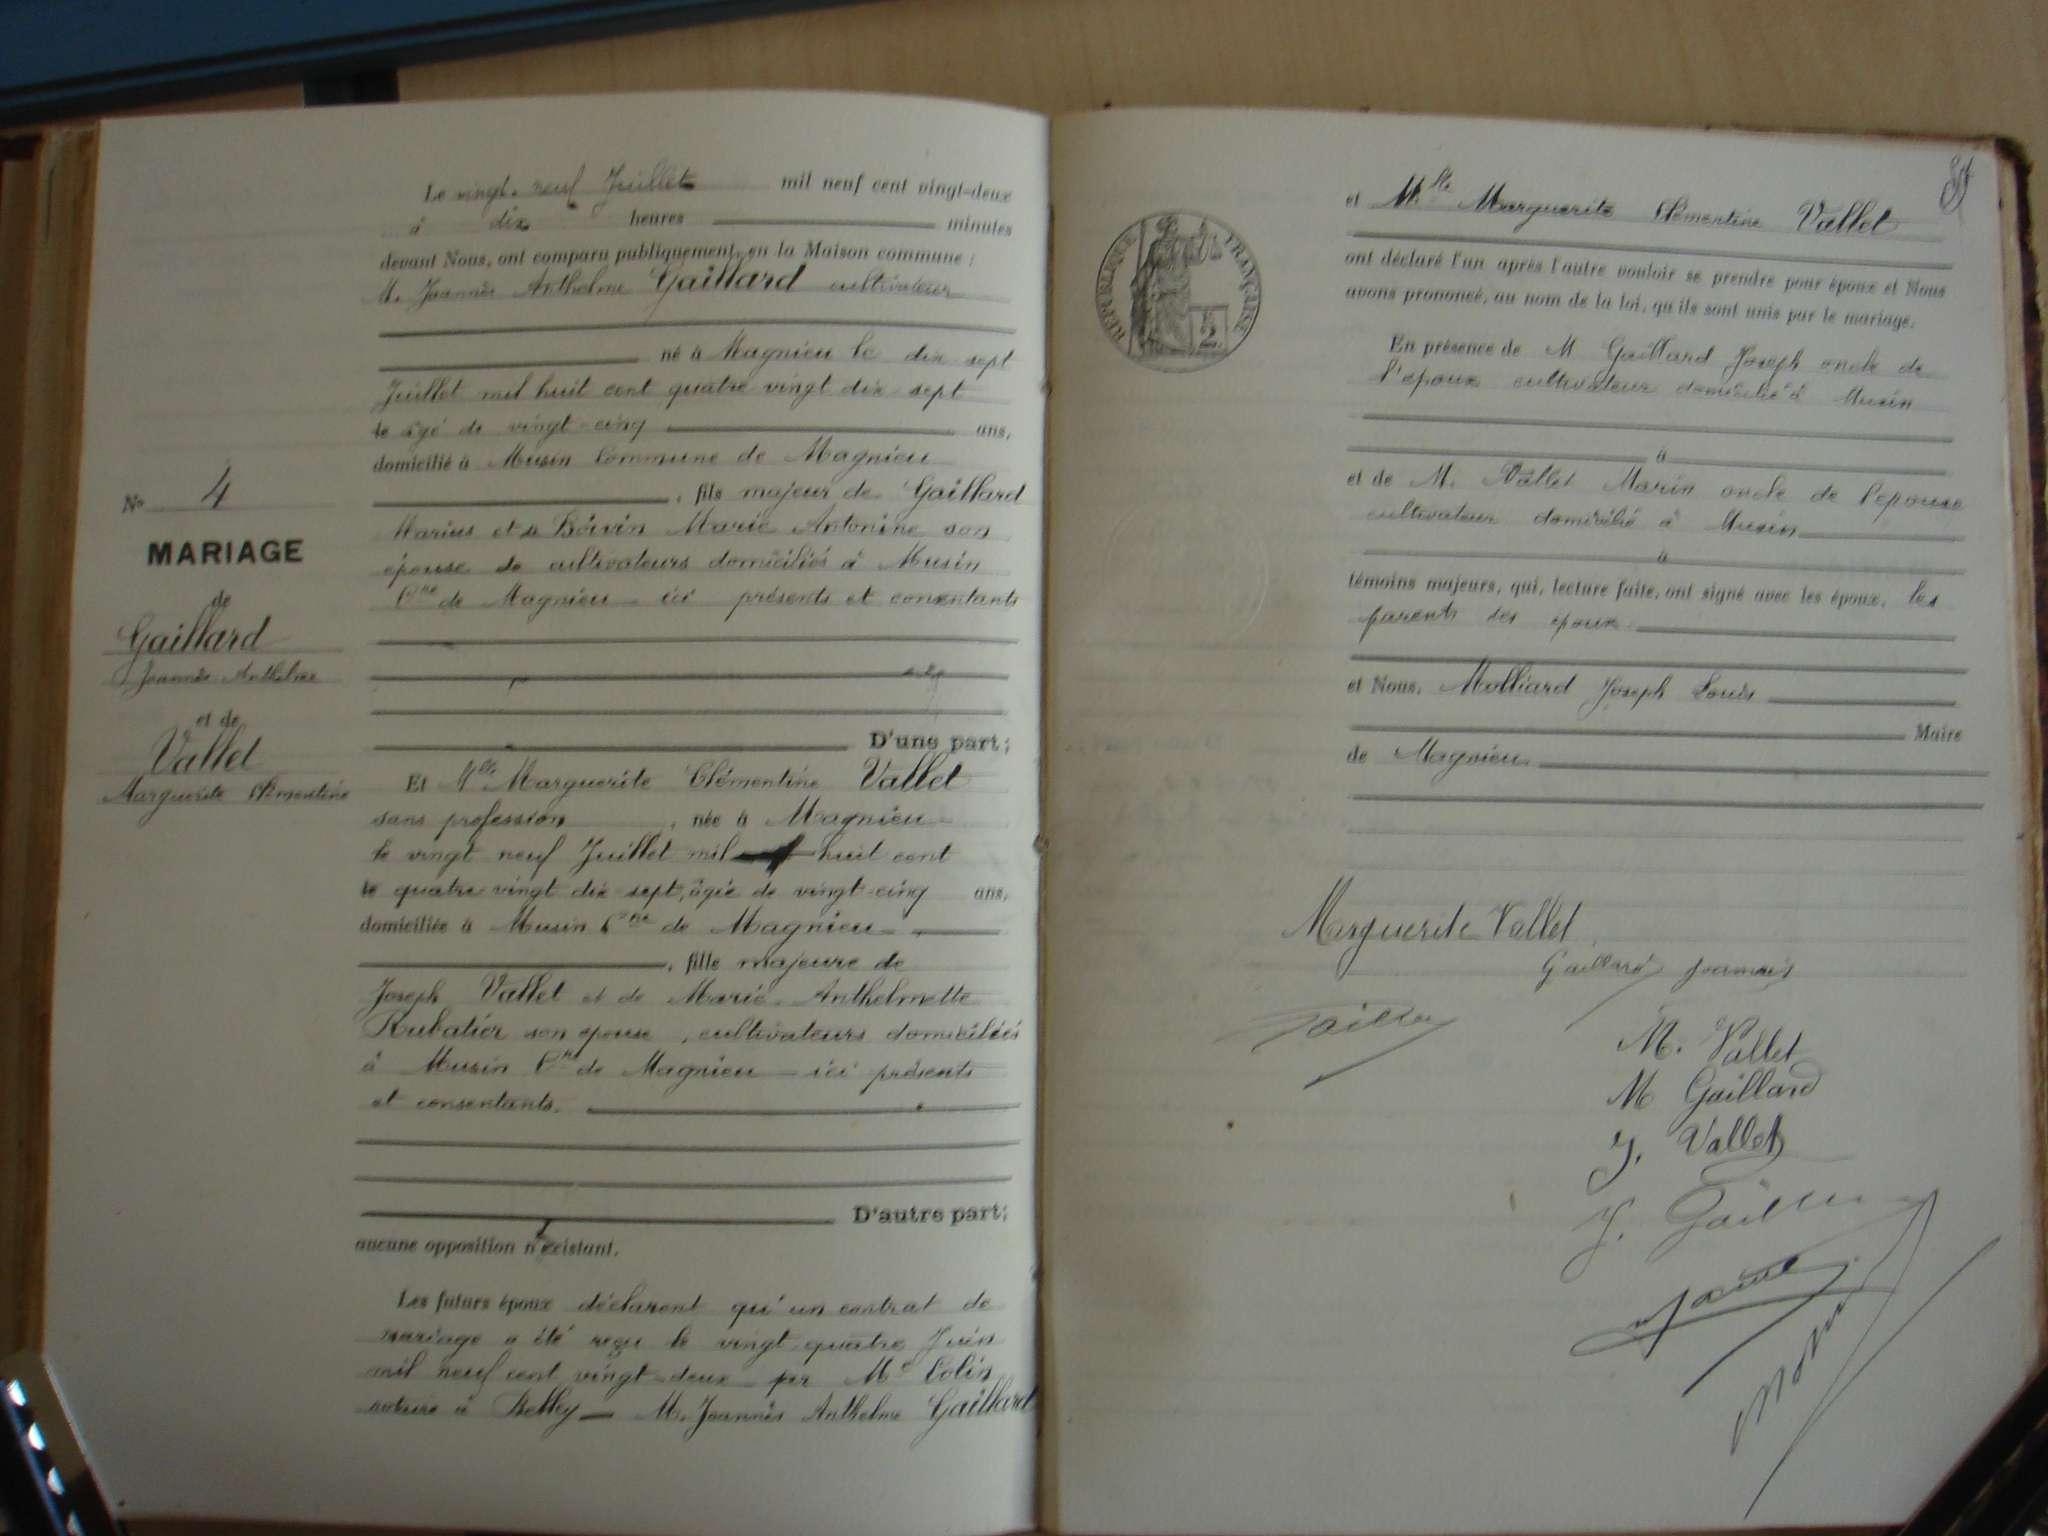 Le vingt-neuf Juillet mil neuf cent vingt-deux
à dix heures minutes
devant Nous, ont comparu publiquement en la Maison commune :
M. Joannès Anthelme Gaillard cultivateur
né à Magnieu le dix sept
Juillet mil huit cent quatre vingt dix-sept
le âgé de vingt-cinq ans,
domicilié à Musin Commune de Magnieu
, fils majeur de Gaillard
Marius et de Boivin Marie Antonine son
épouse de cultivateurs domiciliés à Musin
Cne de Magnieu - ici présents et consentants
D'une part ;
No 4
MARIAGE
de
Gaillard
Joannès Anthelme
et de
Vallet
Marguerite Clémentine
Et Mlle Marguerite Clémentine Vallet
sans profession, née à Magnieu
le vingt neuf Juillet mil huit cent
le quatre vingt dix-sept, âgée de vingt-cinq ans,
domiciliée à Musin Cne de Magnieu
, fille majeure de
Joseph Vallet et de Marie-Anthelmette
Rubatier son epouse, cultivateurs domiciliés
à Musin Cne de Magnieu - ici présents
et consentants.
D'autre part ;
aucune opposition n'existant.
Les futurs époux déclarent qu'un contrat de
mariage a été reçu le vingt-quatre Juin
mil neuf cent vingt-deux par Me Colin
notaire à Belley — M. Joannès Anthelme Gaillard
et Mlle Marguerite Clémentine Vallet
ont déclaré l'un après l'autre vouloir se prendre pour époux et Nous
avons prononcé, au nom de la loi, qu'ils sont unis par le mariage.
REPUBLIQUE FRANÇAISE
2
En présence de M Gaillard Joseph oncle de
l'epoux cultivateur domicilié à Musin
à
et de M. Vallet Marin oncle de l'epouse
cultivateur domicilié à Musin
à
témoins majeurs, qui, lecture faite, ont signé avec les époux, les
parents des époux
et Nous, Molliard Joseph Louis
Maire
de Magnieu
Marguerite Vallet
Gaillard Joannès
M. Vallet
M Gaillard
J. Vallet
J.